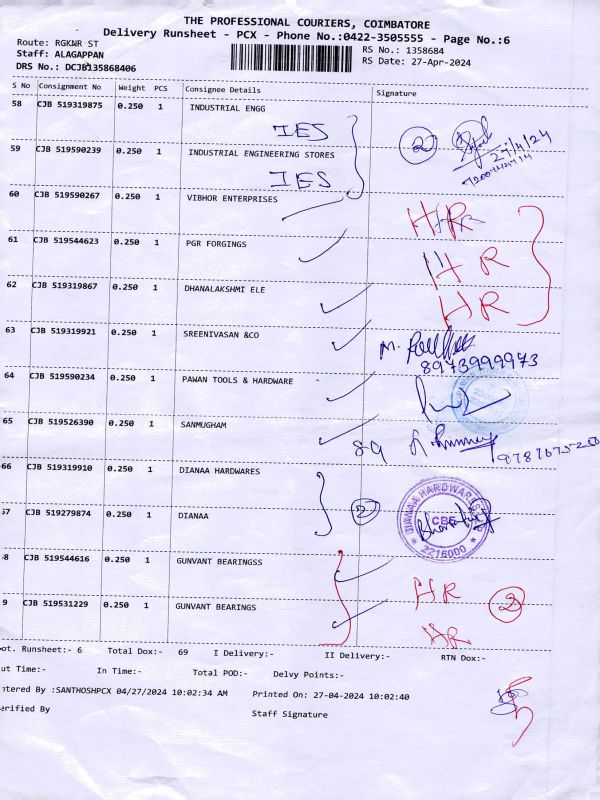 THE PROFESSIONAL COURIERS, COIMBATORE
Delivery Runsheet - PCX - Phone No.:0422-3505555 - Page No.:6
Route: RGKNR ST
RS No.: 1358684
Staff: ALAGAPPAN
RS Date: 27-Apr-2024
DRS No.: DCJB135868406
S No Consignment No Weight PCS Consignee Details Signature
58 CJB 519319875 0.250 1 INDUSTRIAL ENGG
IES
2 27/4/24
59 CJB 519590239 0.250 1 INDUSTRIAL ENGINEERING STORES
IES
60 CJB 519590267 0.250 1 VIBHOR ENTERPRISES
HR
61 CJB 519544623 0.250 1 PGR FORGINGS
HR
62 CJB 519319867 0.250 1 DHANALAKSHMI ELE
HR
63 CJB 519319921 0.250 1 SREENIVASAN &CO
M.
8973999973
64 CJB 519590234 0.250 1 PAWAN TOOLS & HARDWARE
65 CJB 519526390 0.250 1 SANMUGHAM
66 CJB 519319910 0.250 1 DIANAA HARDWARES
2
DIANAA HARDWARES
CBE
2216000
57 CJB 519279874 0.250 1 DIANAA
8 CJB 519544616 0.250 1 GUNVANT BEARINGSS
HR 2
9 CJB 519531229 0.250 1 GUNVANT BEARINGS
HR
ot. Runsheet:- 6 Total Dox:- 69 I Delivery:- II Delivery:- RTN Dox:-
ut Time:- In Time:- Total POD:- Delvy Points:-
ntered By :SANTHOSHPCX 04/27/2024 10:02:34 AM Printed On: 27-04-2024 10:02:40
erified By Staff Signature